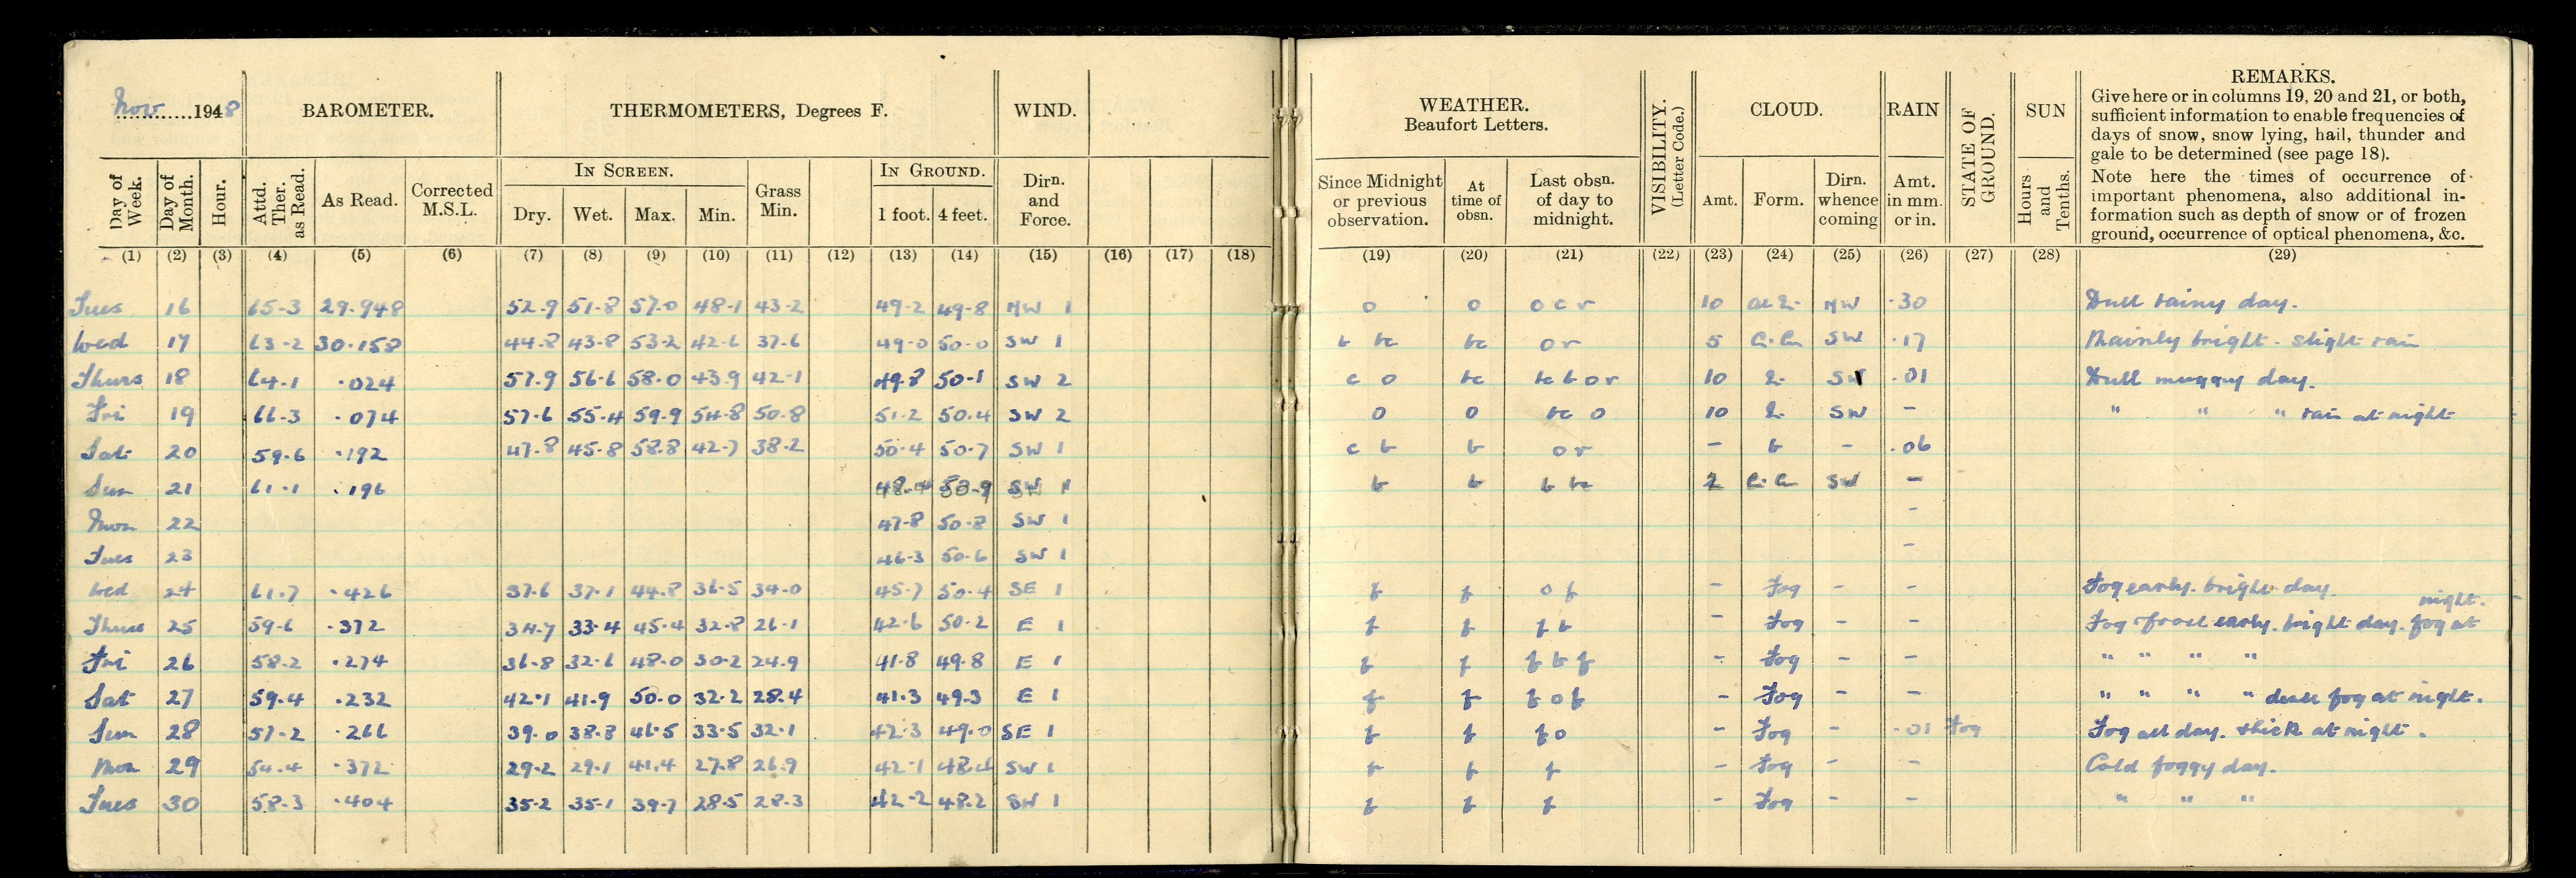 Nov 1948
BAROMETER.
THERMOMETERS, Degrees F.
WIND.
WEATHER.
Beaufort Letters.
VISIBILITY.
(Letter Code.)
CLOUD.
RAIN
STATE OF GROUND.
SUN
REMARKS.
Give here or in columns 19, 20 and 21, or both,
sufficient information to enable frequencies of
days of snow, snow lying, hail, thunder and
gale to be determined (see page 18).
Note here the times of occurrence of
important phenomena, also additional in-
formation such as depth of snow or of frozen
ground, occurrence of optical phenomena, &c.
IN SCREEN.
IN GROUND.
Day of Week.
Day of Month.
Hour.
Attd. Ther. as Read.
As Read.
Corrected M.S.L.
Dry.
Wet.
Max.
Min.
Grass Min.
1 foot.
4 feet.
Dirn. and Force.
Since Midnight or previous observation.
At time of obsn.
Last obsn. of day to midnight.
Amt.
Form.
Dirn. whence coming
Amt. in mm. or in.
Hours and Tenths.
(1) (2) (3) (4) (5) (6) (7) (8) (9) (10) (11) (12) (13) (14) (15) (16) (17) (18) (19) (20) (21) (22) (23) (24) (25) (26) (27) (28) (29)
Tues 16 65.3 29.948 52.9 51.8 57.0 48.1 43.2 49.2 49.8 NW 1 o o o c r 10 NW .30 Dull rainy day.
Wed 17 63.2 30.158 44.8 43.8 53.2 42.6 37.6 49.0 50.0 SW 1 b bc bc o r 5 SW .17 Mainly bright. slight rain
Thurs 18 64.1 .024 57.9 56.6 58.0 43.9 42.1 49.8 50.1 SW 2 c o bc bc b o r 10 SW .01 Dull muggy day.
Fri 19 66.3 .074 57.6 55.4 59.9 54.8 50.8 51.2 50.4 SW 2 o o bc o 10 SW - " " " rain at night
Sat 20 59.6 .192 47.8 45.8 58.8 42.7 38.2 50.4 50.7 SW 1 c b b o r - b - .06
Sun 21 61.1 .196 48.4 50.9 SW 1 b b b bc 2 SW -
Mon 22 47.8 50.8 SW 1 -
Tues 23 46.3 50.6 SW 1 -
Wed 24 61.7 .426 37.6 37.1 44.8 36.5 34.0 45.7 50.4 SE 1 f f o f - Fog - - Fog early. bright day.
Thurs 25 59.6 .372 34.7 33.4 45.4 32.8 26.1 42.6 50.2 E 1 f f f b - Fog - - Fog & frost early. bright day. fog at night.
Fri 26 58.2 .274 36.8 32.6 48.0 30.2 24.9 41.8 49.8 E 1 f f f b f - Fog - - " " " "
Sat 27 59.4 .232 42.1 41.9 50.0 32.2 28.4 41.3 49.3 E 1 f f f o f - Fog - - " " " " dense fog at night.
Sun 28 57.2 .266 39.0 38.8 46.5 33.5 32.1 42.3 49.0 SE 1 f f f o - Fog - .01 Fog Fog all day. thick at night.
Mon 29 54.4 .372 29.2 29.1 41.4 27.8 26.9 42.1 48.6 SW 1 f f f - Fog - - Cold foggy day.
Tues 30 58.3 .404 35.2 35.1 39.7 28.5 28.3 42.2 48.2 SW 1 f f f - Fog - - " " "